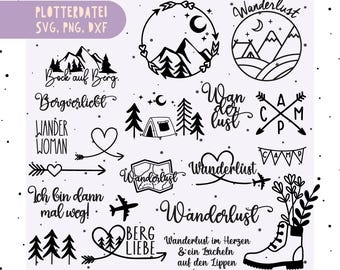 PLOTTERDATEI
SVG, PNG, DXF
Wanderlust
Bock auf Berg.
Bergverliebt
Wan
der
lust
C A
M P
WANDER
WOMAN
CAMP
Wanderlust
Wanderlust
Ich bin dann
mal weg!
Wanderlust
BERG
LIEBE
Wanderlust im Herzen
& ein Lächeln
auf den Lippen